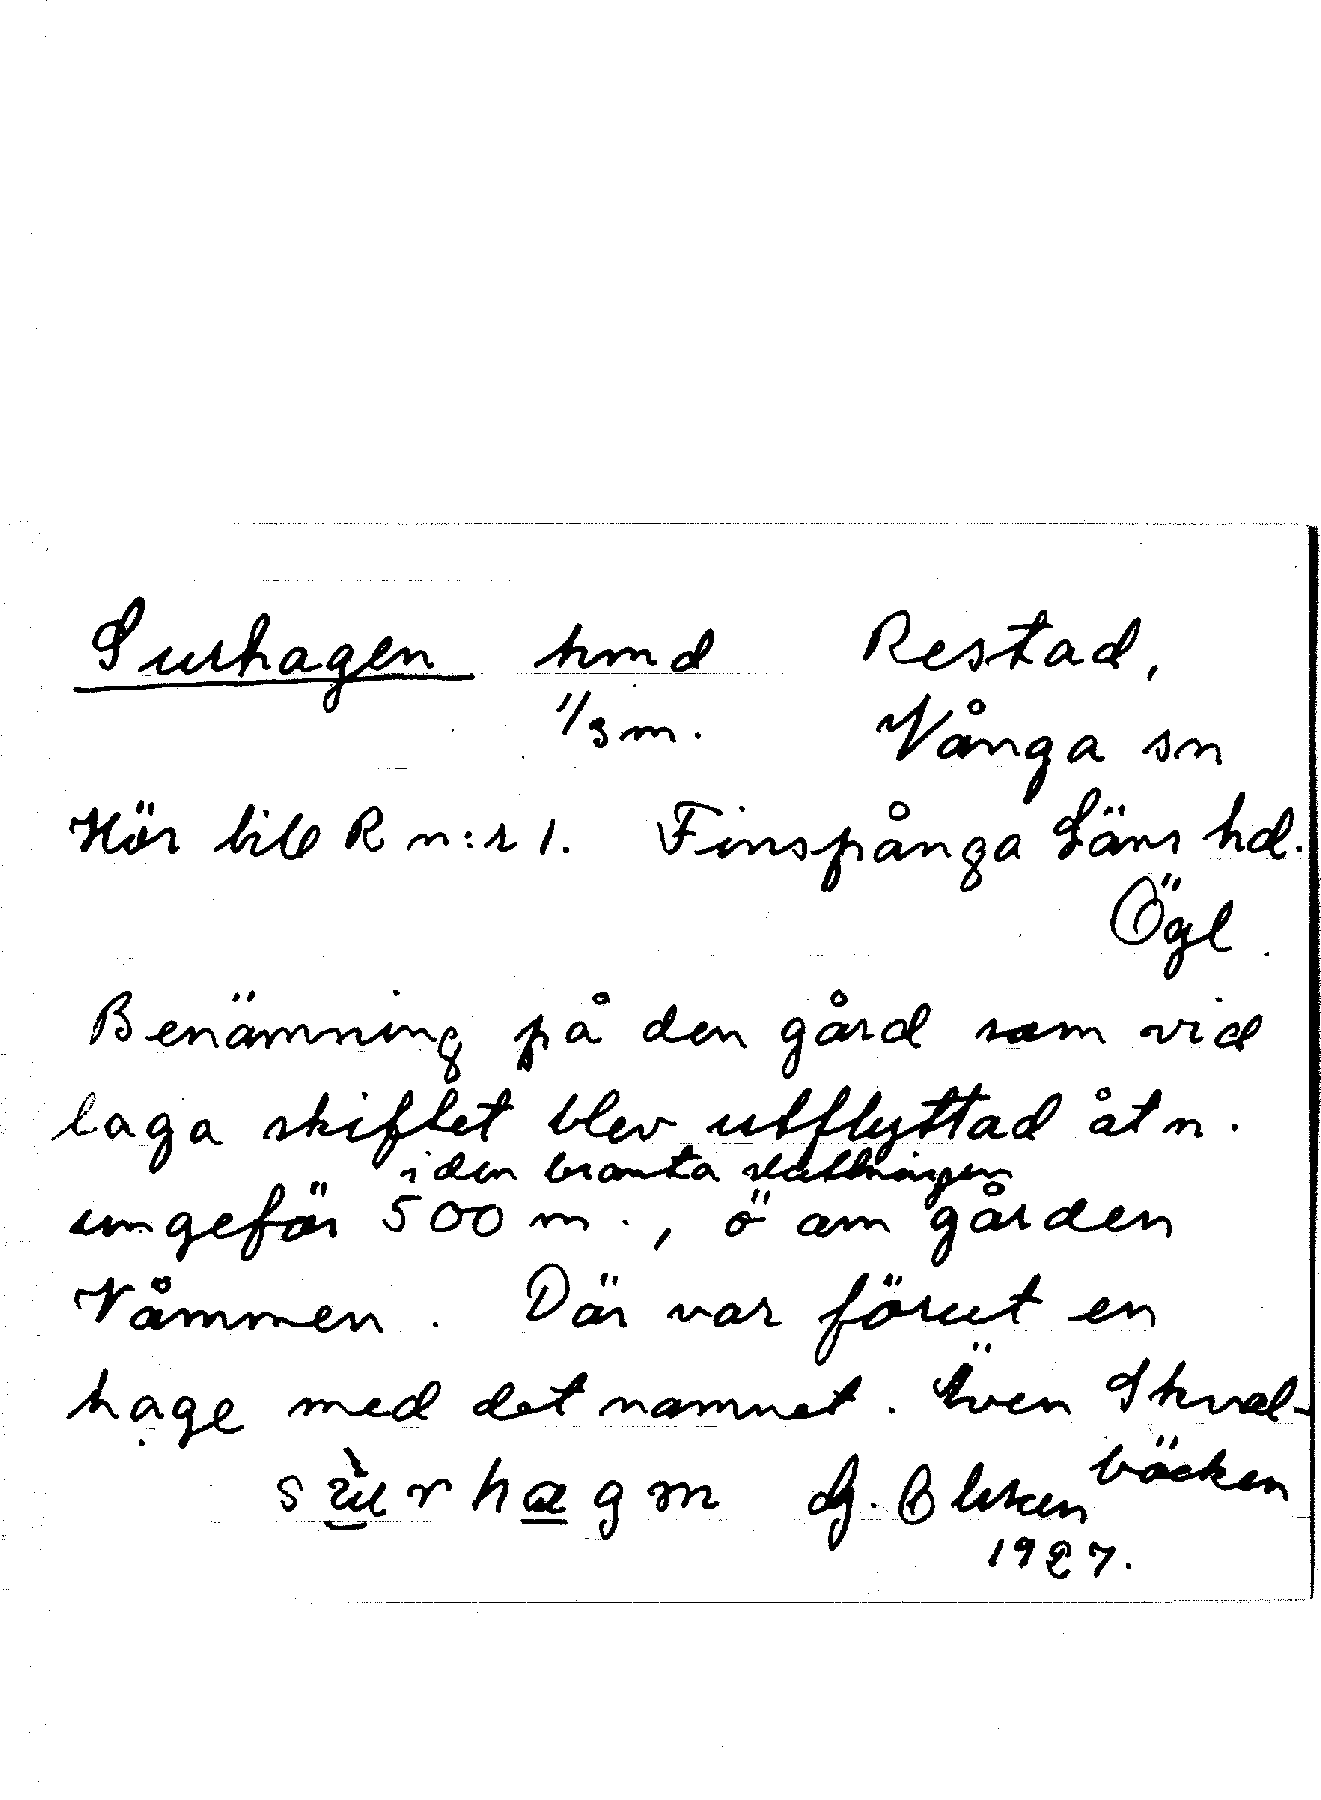 Surhagen hmd Restad,
1/3 m. Vånga sn
Hör till R n:r 1. Finspånga Läns hd.
Ögl.
Benämning på den gård som vid
laga skiftet blev utflyttad åt n.
i den branta sluttningen
ungefär 500 m., ö om gården
Våmmen. Där var förut en
hage med det namnet. Även Skval-
bäcken
sùrhagm G.
1927.